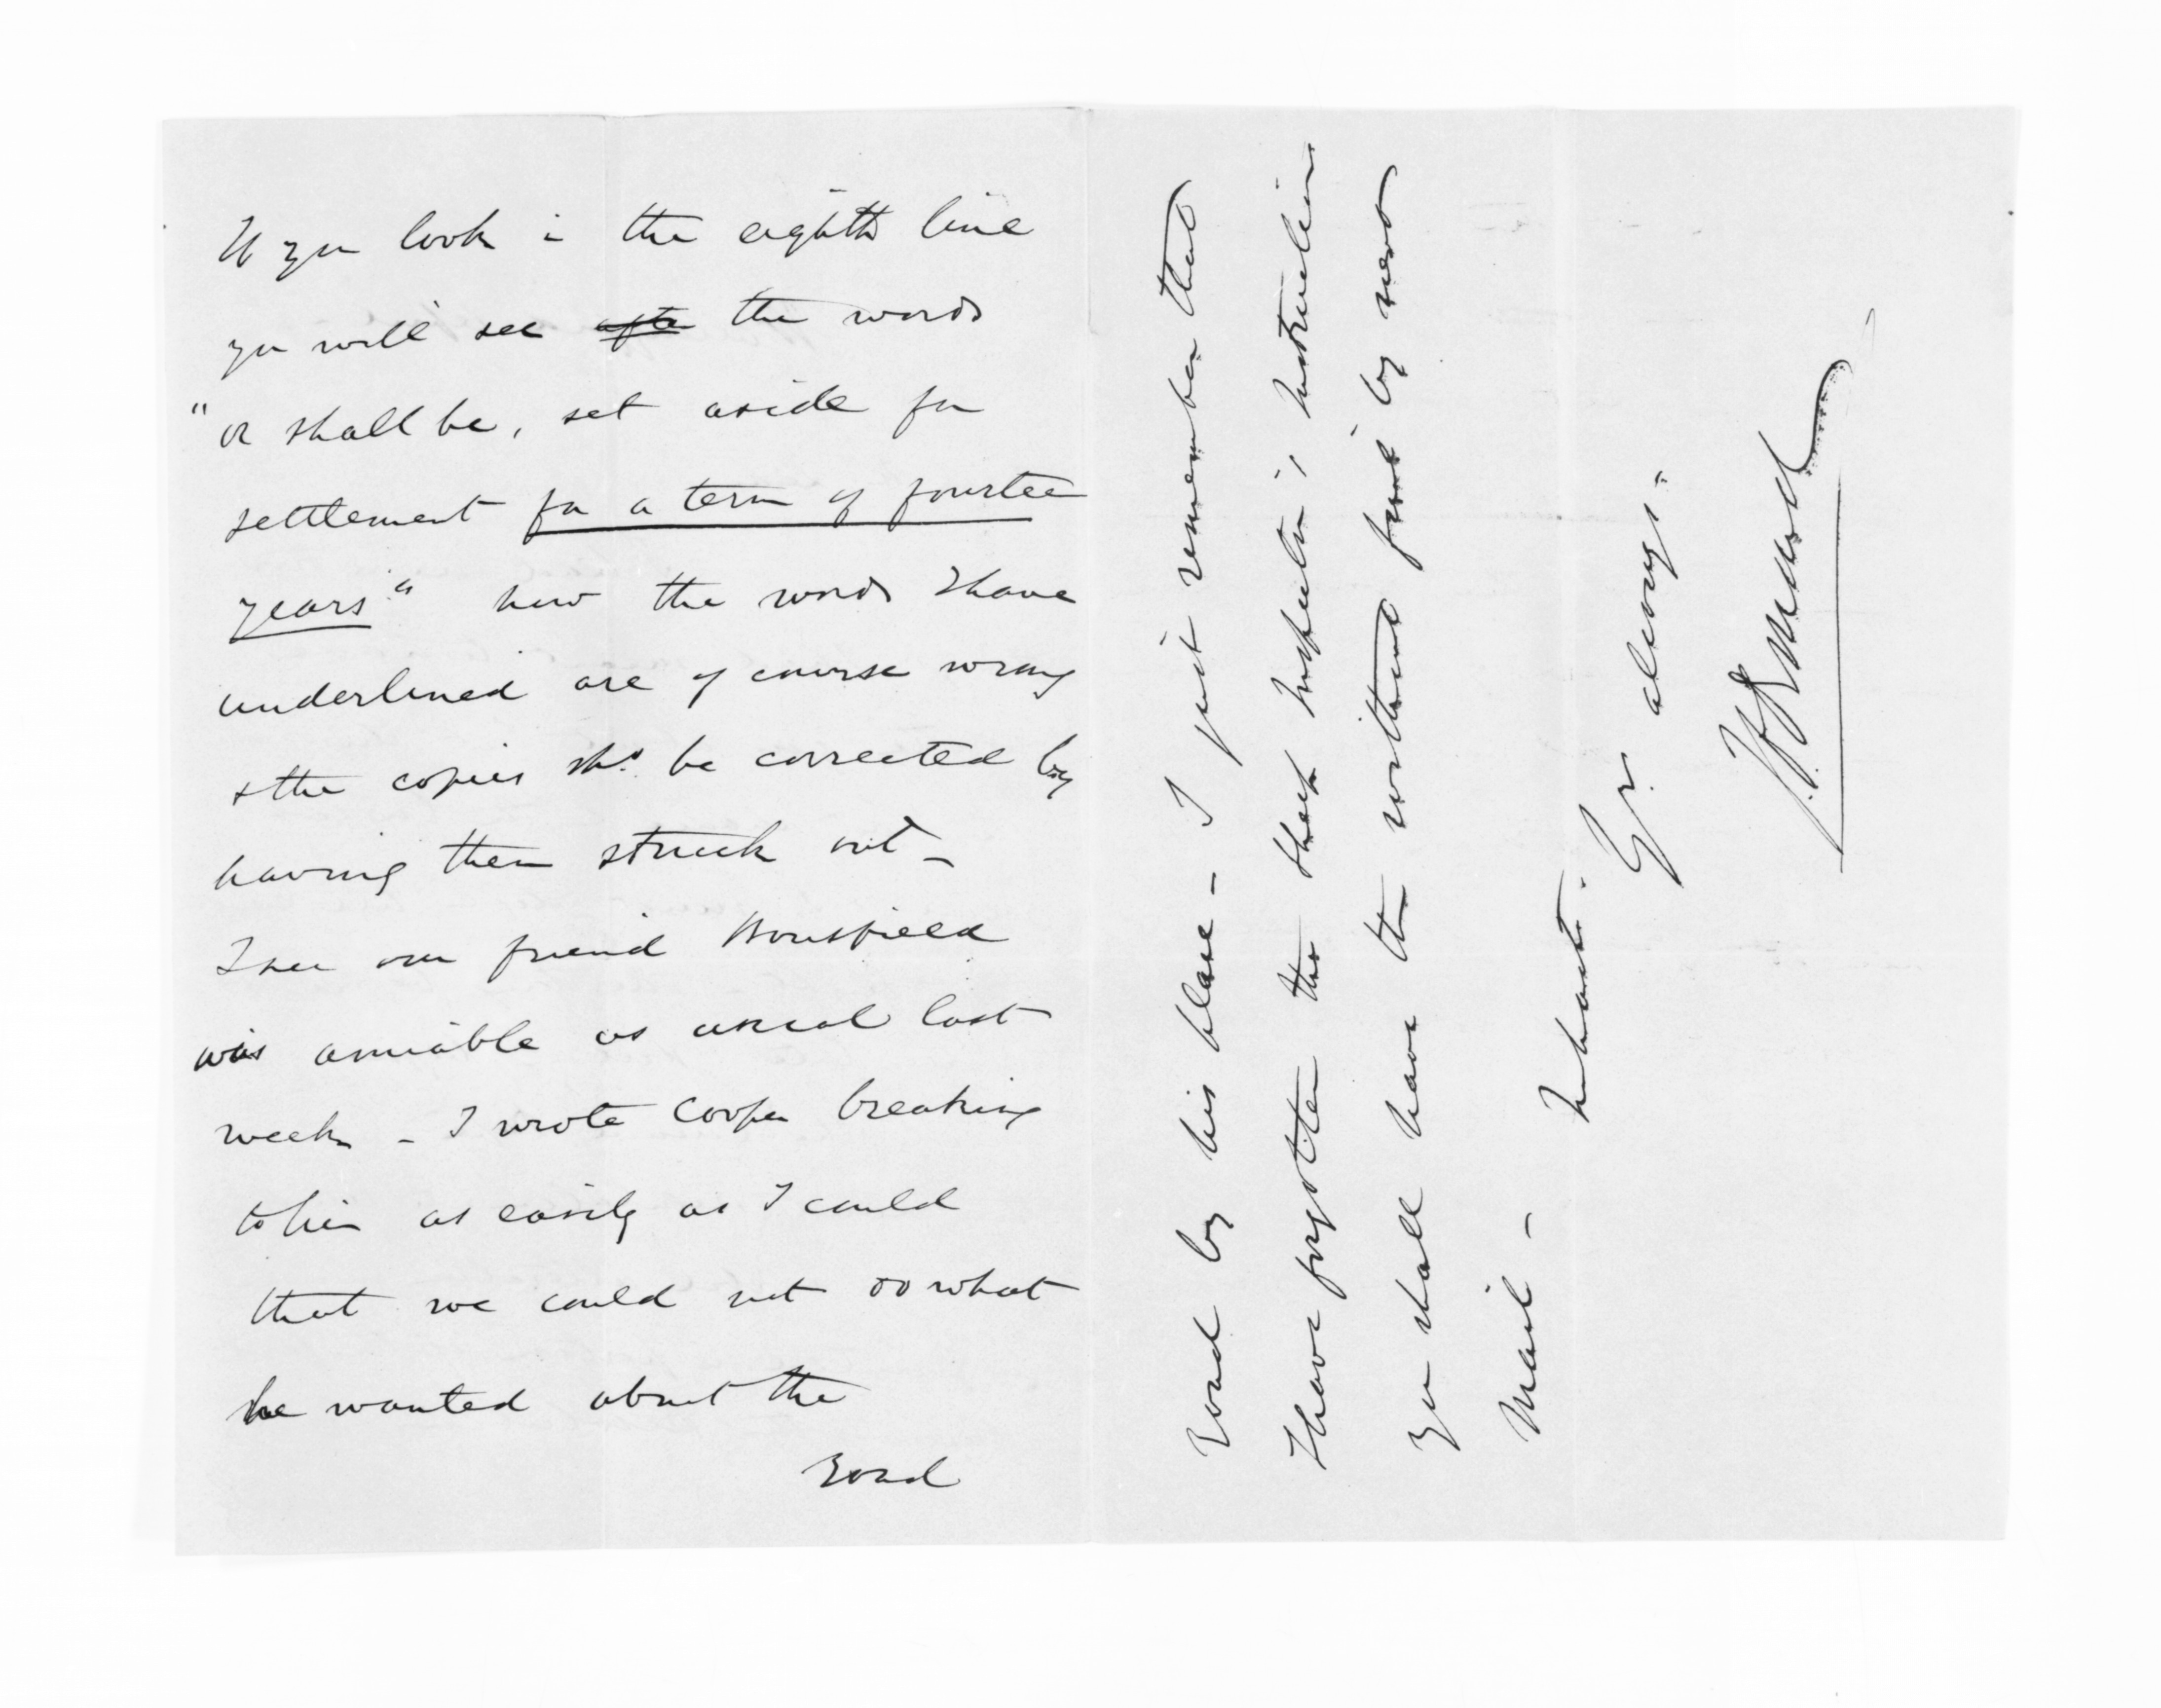 If you look in the eighth line
you will see after the words
"or shall be, set aside for
settlement for a term of fourteen
years" now the words I have
underlined are of course wrong
& the copies shd. be corrected by
having them struck out -
I see our friend Bousfield
was amiable as usual last
week - I wrote Cooper breaking
to him as easily as I could
that we could not do what
he wanted about the
road
road by his place - I just remember that
I have forgotten the Sheep Inspector's instructions
you shall have them without fail by next
Mail -
In haste.
Yrs. always -